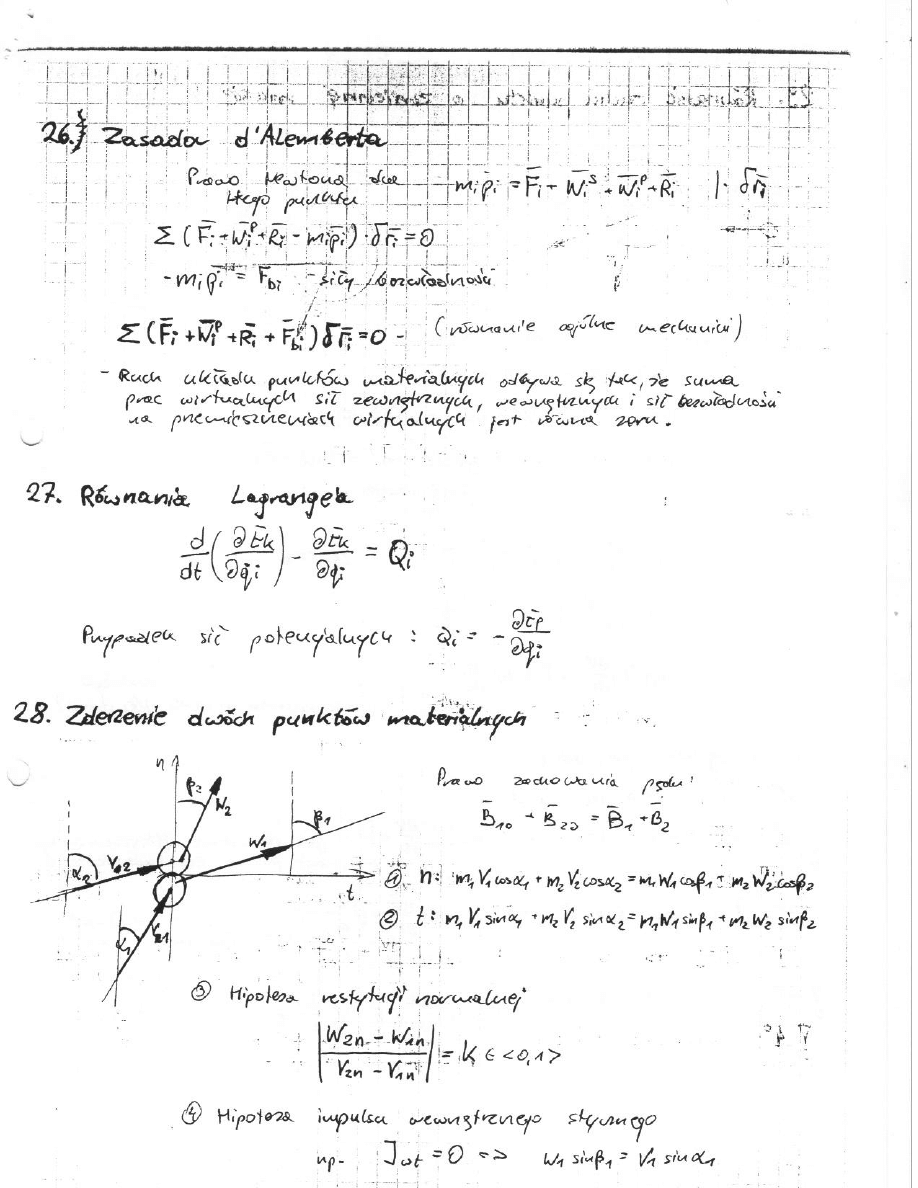 26. Zasada d'Alemberta
Prawo Newtona dla m_i p̄_i = F̄_i + W̄_i^s + W̄_i^p + R̄_i |· δr̄_i
i-tego punktu
Σ (F̄_i + W̄_i^p + R̄_i - m_i p̄_i) · δr̄_i = 0
- m_i p̄_i = F̄_bi - siły bezwładności
Σ (F̄_i + W̄_i^p + R̄_i + F̄_bi) δr̄_i = 0 - (równanie ogólne mechaniki)
- Ruch układu punktów materialnych odbywa się tak, że suma
prac wirtualnych sił zewnętrznych, wewnętrznych i sił bezwładności
na przemieszczeniach wirtualnych jest równa zeru.
27. Równania Lagrange'a
d/dt (∂Ek/∂q̇i) - ∂Ek/∂qi = Qi
Przypadek sił potencjalnych : Qi = - ∂Ep/∂qi
28. Zderzenie dwóch punktów materialnych
n β2 W2 W1 β1 α2 t α1
Prawo zachowania pędu:
B̄10 + B̄20 = B̄1 + B̄2
① n: m1 V1 cosα1 + m2 V2 cosα2 = m1 W1 cosβ1 + m2 W2 cosβ2
② t: m1 V1 sinα1 + m2 V2 sinα2 = m1 W1 sinβ1 + m2 W2 sinβ2
③ Hipoteza restytucji normalnej
|(W2n - W1n)/(V2n - V1n)| = K ∈ <0,1>
④ Hipoteza impulsu wewnętrznego stycznego
np. Jwt = 0 => W1 sinβ1 = V1 sinα1